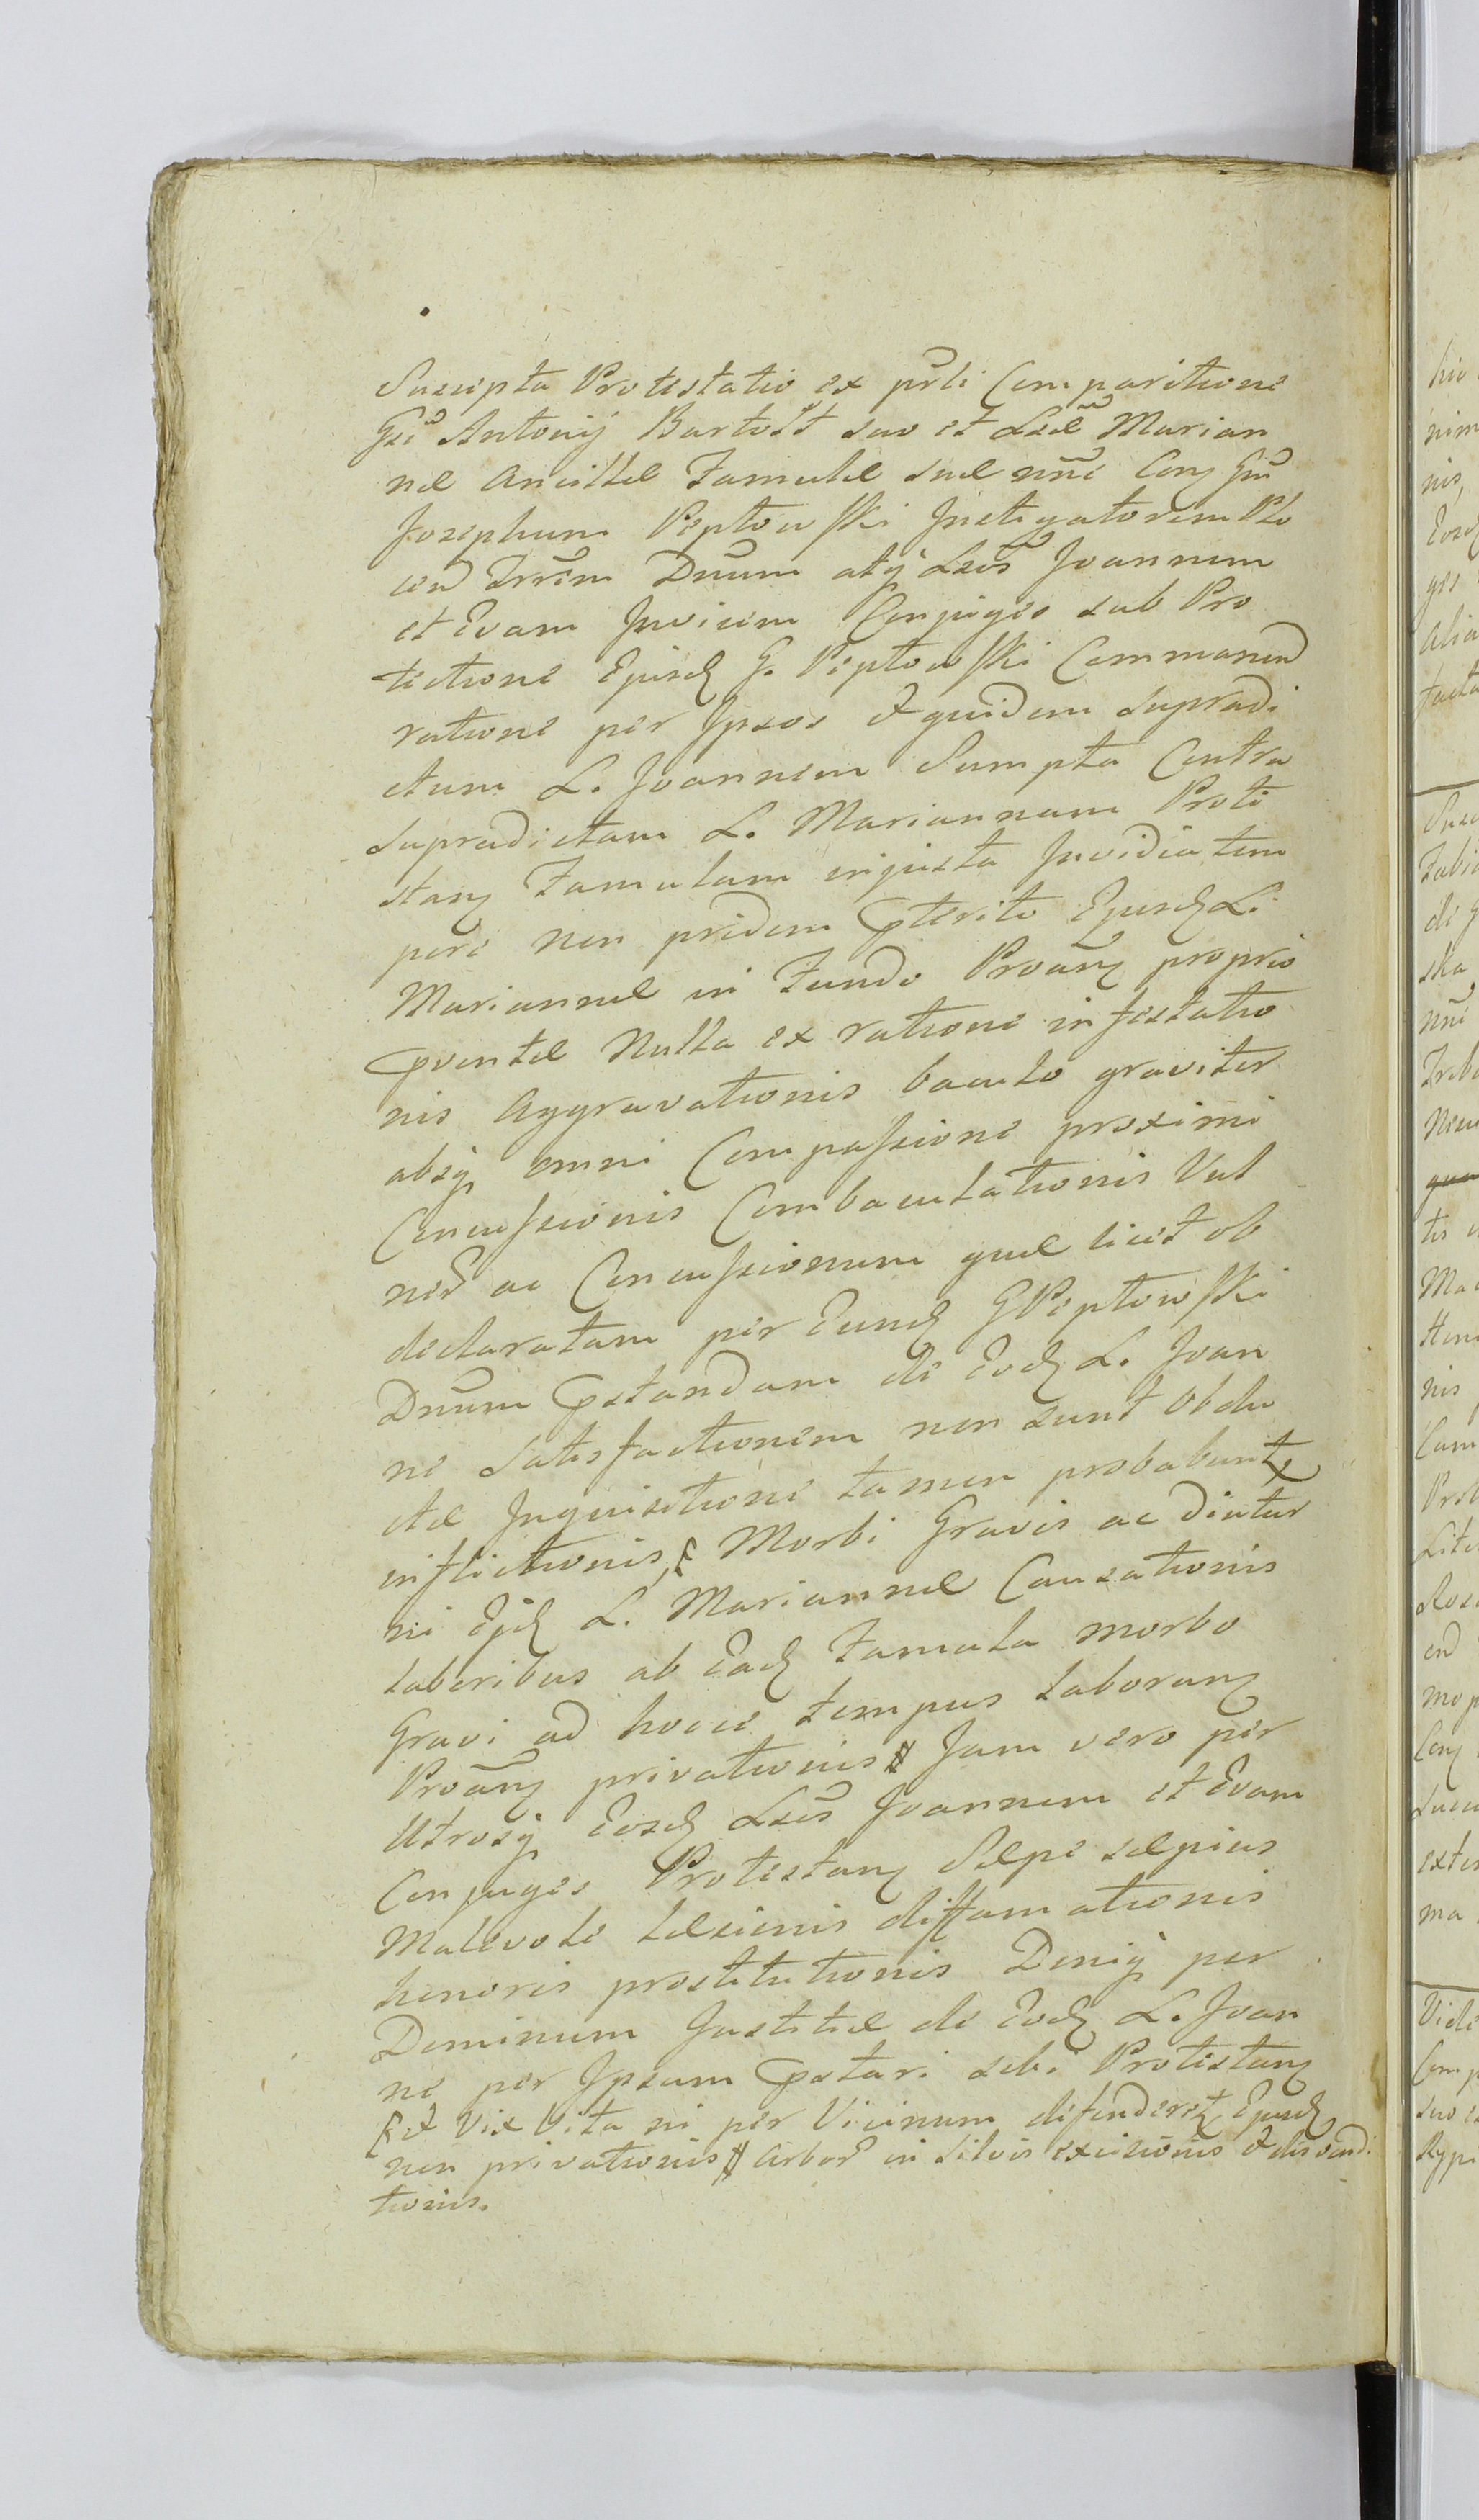 Suscepta Protestatio ex prsli Comparitione
Gsi Antonij Bartołt suo et Lsæ Marian
næ Ancillæ Famulæ suæ nne Con Gm
Josephum Peptowski Instigatorem Plo
cen Trrem Dnum atq Lsos Joannem
et Evam Invicem Conjuges sub Pro
tectione Ejusd G. Peptowski Commanend
ratione per Ipsos & quidem supradi
ctum L. Joannem Sumpta Contra
supradictam L. Mariannam Prote
stan Famulam injusta Invidia tem
pore non pridem Pterito Ejusd L.
Mariannæ in Fundo Proan proprio
Pventæ Nulla ex ratione infestatio
nis Aggravationis baculo graviter
absq omni Compassione proximi
Concussionis Combaculationis Vul
ner ac Concussionum quæ licet ob
declaratam per Eund G Peptowski
Dnum Pstandam de Eod L. Joan
ne Satisfactionem non sunt Obdu
ctæ Inquisitione tamen probabunt
inflictionis, Morbi Gravis ac Diutur
ni Ejd L. Mariannæ Causationis
laboribus ab Ead Famula morbo
Gravi ad hocce tempus laboran
Proan privationis # Jam vero per
Utrosq Eosd Lsos Joannem et Evam
Conjuges Protestan Sæpe sæpius
Malevole læsionis diffamationis
honoris prostitutionis Deniq per
Dominum Justitiæ de Eod L. Joan
ne per Ipsum Pstari sibi Protestan
& Vix Vita ni per Vicinum defenderet Ejusd
non privationis # Arbor in Silvis excisionis & disvendi
tionis.